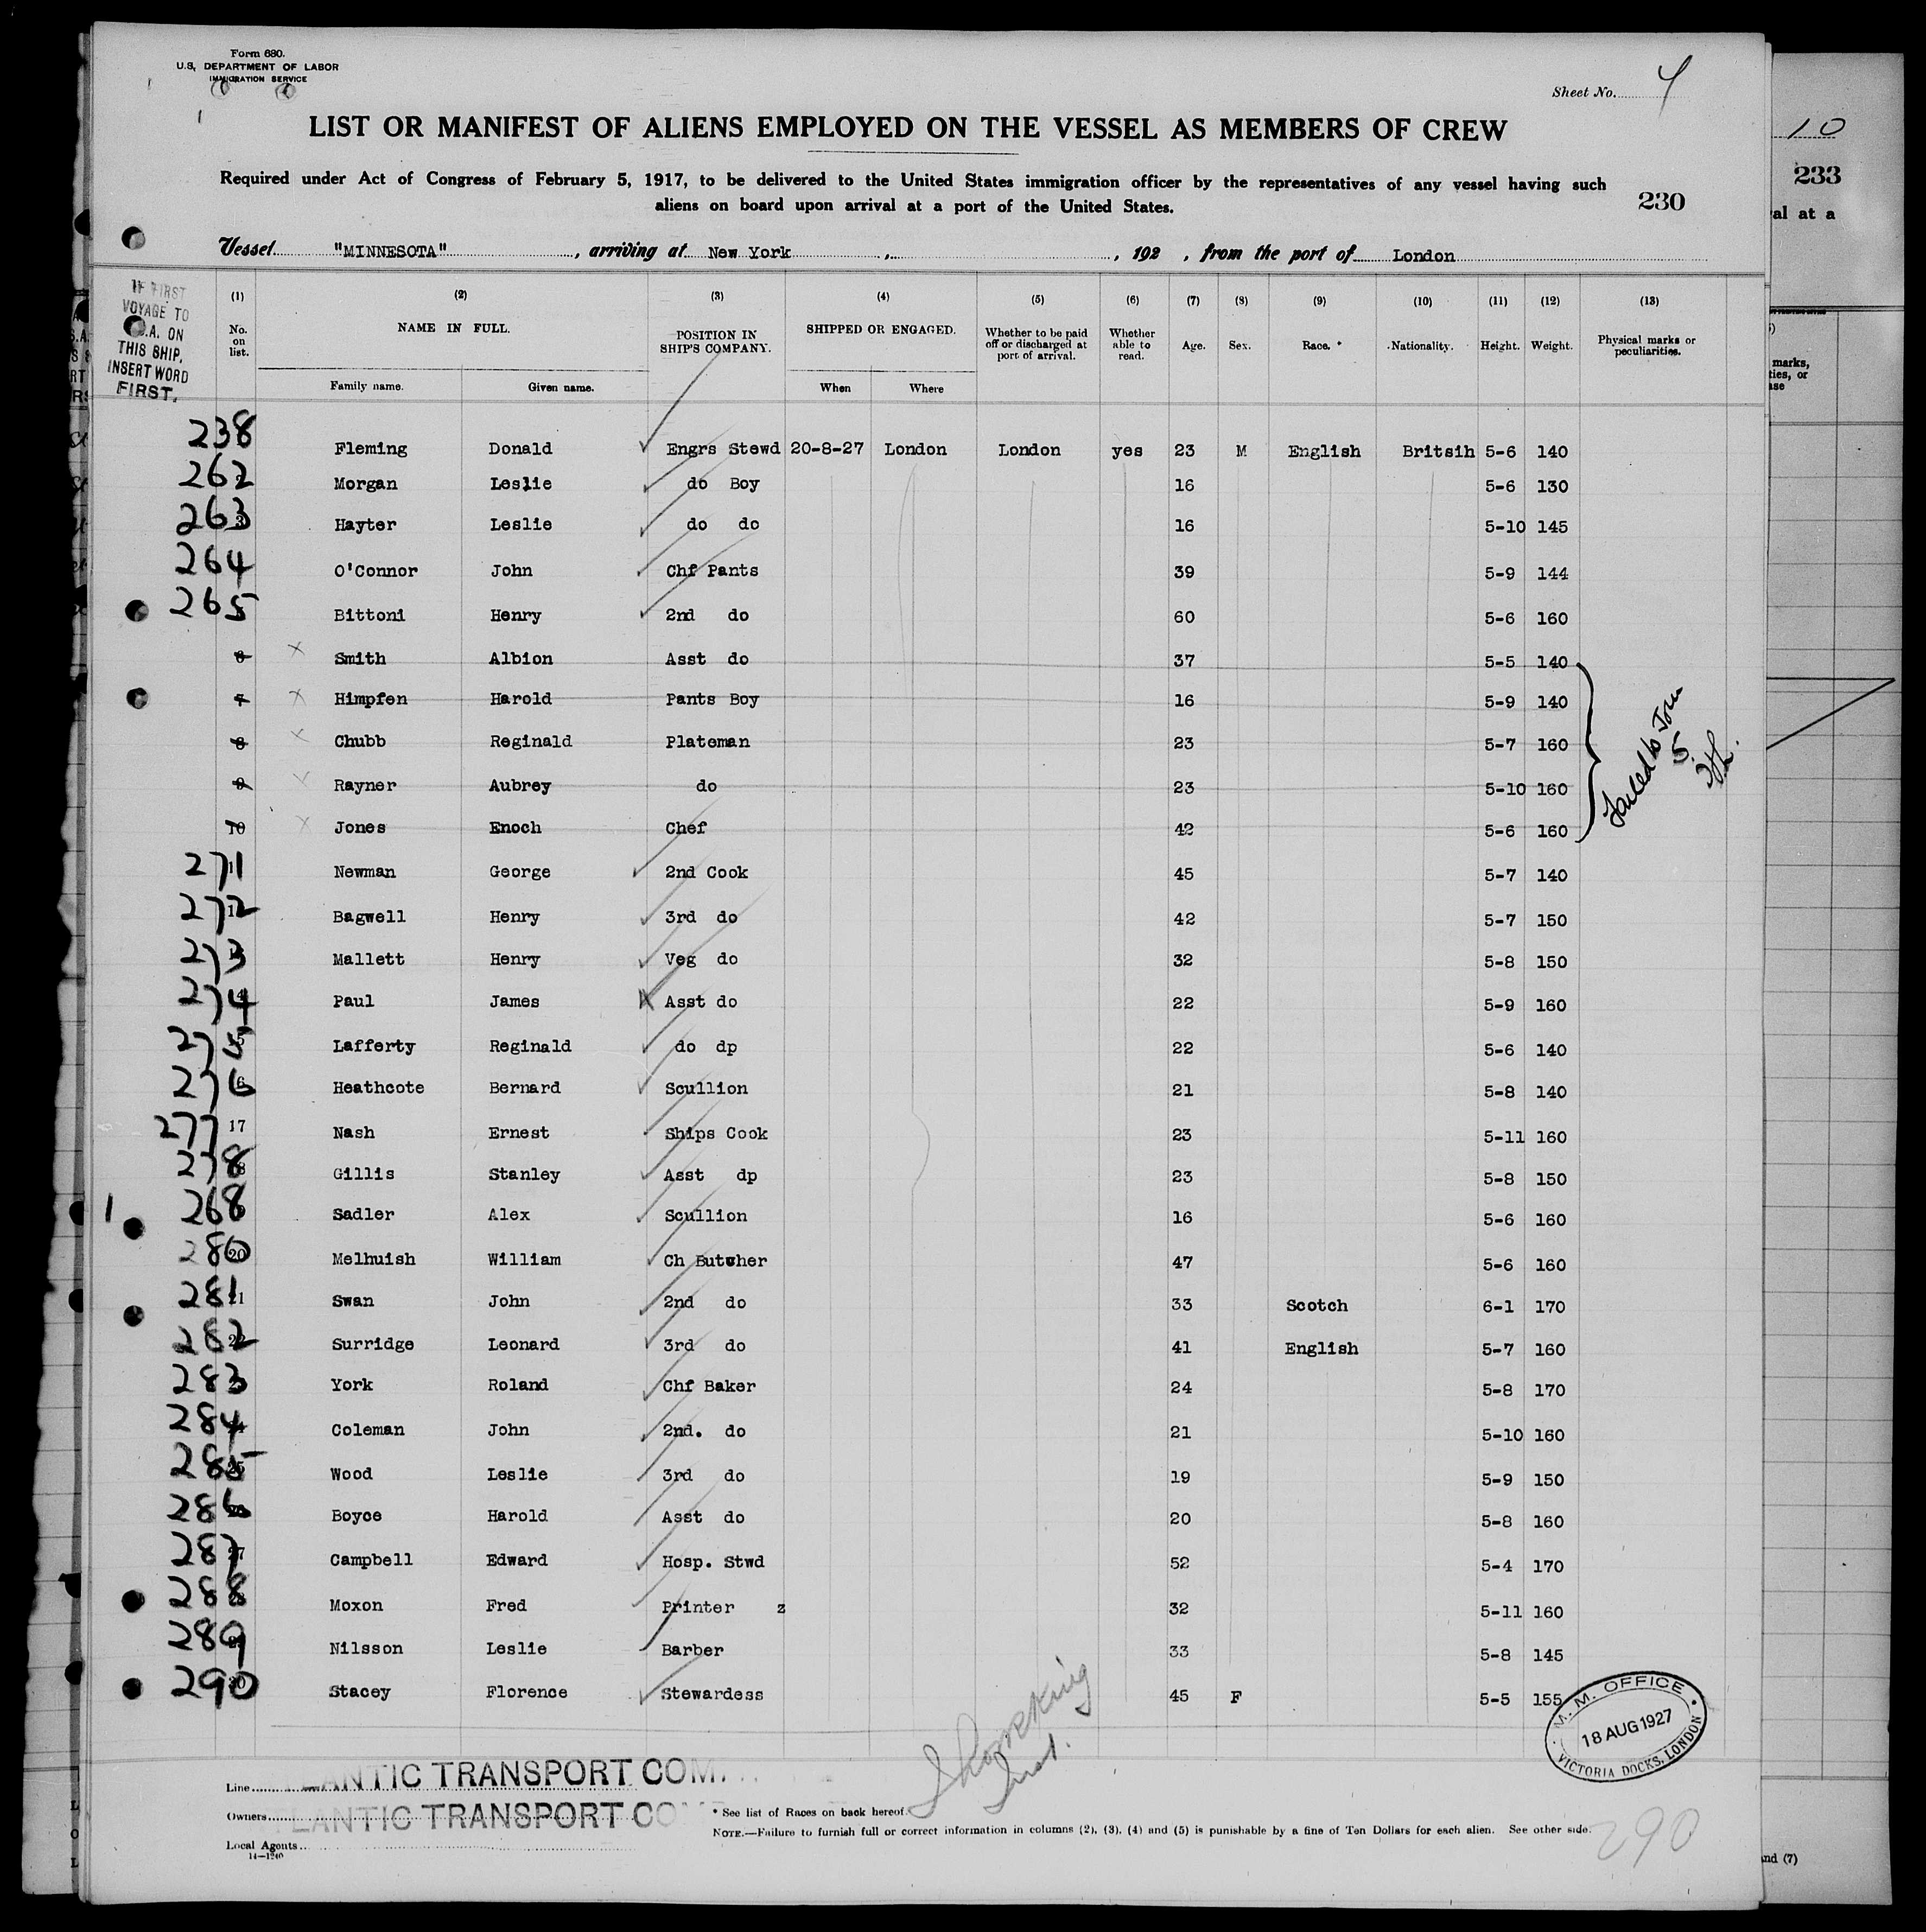 Form 680.
U.S. DEPARTMENT OF LABOR
IMMIGRATION SERVICE
Sheet No. 4
LIST OR MANIFEST OF ALIENS EMPLOYED ON THE VESSEL AS MEMBERS OF CREW
Required under Act of Congress of February 5, 1917, to be delivered to the United States immigration officer by the representatives of any vessel having such
aliens on board upon arrival at a port of the United States.
230
Vessel "MINNESOTA", arriving at New York, , 192 , from the port of London
IF FIRST VOYAGE TO U.S.A. ON THIS SHIP, INSERT WORD FIRST.
(1) (2) (3) (4) (5) (6) (7) (8) (9) (10) (11) (12) (13)
No. on list. NAME IN FULL. POSITION IN SHIP'S COMPANY. SHIPPED OR ENGAGED. Whether to be paid off or discharged at port of arrival. Whether able to read. Age. Sex. Race. * Nationality. Height. Weight. Physical marks or peculiarities.
Family name. Given name. When Where
238 Fleming Donald Engrs Stewd 20-8-27 London London yes 23 M English Britsih 5-6 140
262 Morgan Leslie do Boy 16 5-6 130
263 Hayter Leslie do do 16 5-10 145
264 O'Connor John Chf Pants 39 5-9 144
265 Bittoni Henry 2nd do 60 5-6 160
6 Smith Albion Asst do 37 5-5 140
7 Himpfen Harold Pants Boy 16 5-9 140
8 Chubb Reginald Plateman 23 5-7 160
9 Rayner Aubrey do 23 5-10 160
10 Jones Enoch Chef 42 5-6 160
Failed to Join
5
271 Newman George 2nd Cook 45 5-7 140
272 Bagwell Henry 3rd do 42 5-7 150
273 Mallett Henry Veg do 32 5-8 150
274 Paul James Asst do 22 5-9 160
275 Lafferty Reginald do dp 22 5-6 140
276 Heathcote Bernard Scullion 21 5-8 140
277 17 Nash Ernest Ships Cook 23 5-11 160
278 Gillis Stanley Asst dp 23 5-8 150
1 268 Sadler Alex Scullion 16 5-6 160
280 20 Melhuish William Ch Butcher 47 5-6 160
281 21 Swan John 2nd do 33 Scotch 6-1 170
282 22 Surridge Leonard 3rd do 41 English 5-7 160
283 York Roland Chf Baker 24 5-8 170
284 Coleman John 2nd. do 21 5-10 160
285 25 Wood Leslie 3rd do 19 5-9 150
286 Boyce Harold Asst do 20 5-8 160
287 27 Campbell Edward Hosp. Stwd 52 5-4 170
288 Moxon Fred Printer z 32 5-11 160
289 Nilsson Leslie Barber 33 5-8 145
290 Stacey Florence Stewardess 45 F 5-5 155
M. M. OFFICE
18 AUG 1927
VICTORIA DOCKS, LONDON
Line ANTIC TRANSPORT COM
Owners LANTIC TRANSPORT CO
Local Agents
14—1240
* See list of Races on back hereof.
NOTE.—Failure to furnish full or correct information in columns (2), (3), (4) and (5) is punishable by a fine of Ten Dollars for each alien. See other side.
290
10
233
al at a
marks,
ties, or
ase
nd (7)